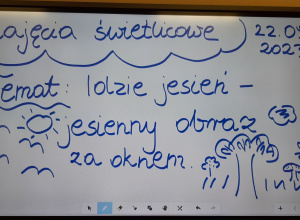 ajęcia świetlicowe 22.0
202
emat: Idzie jesień -
jesienny obraz
za oknem.